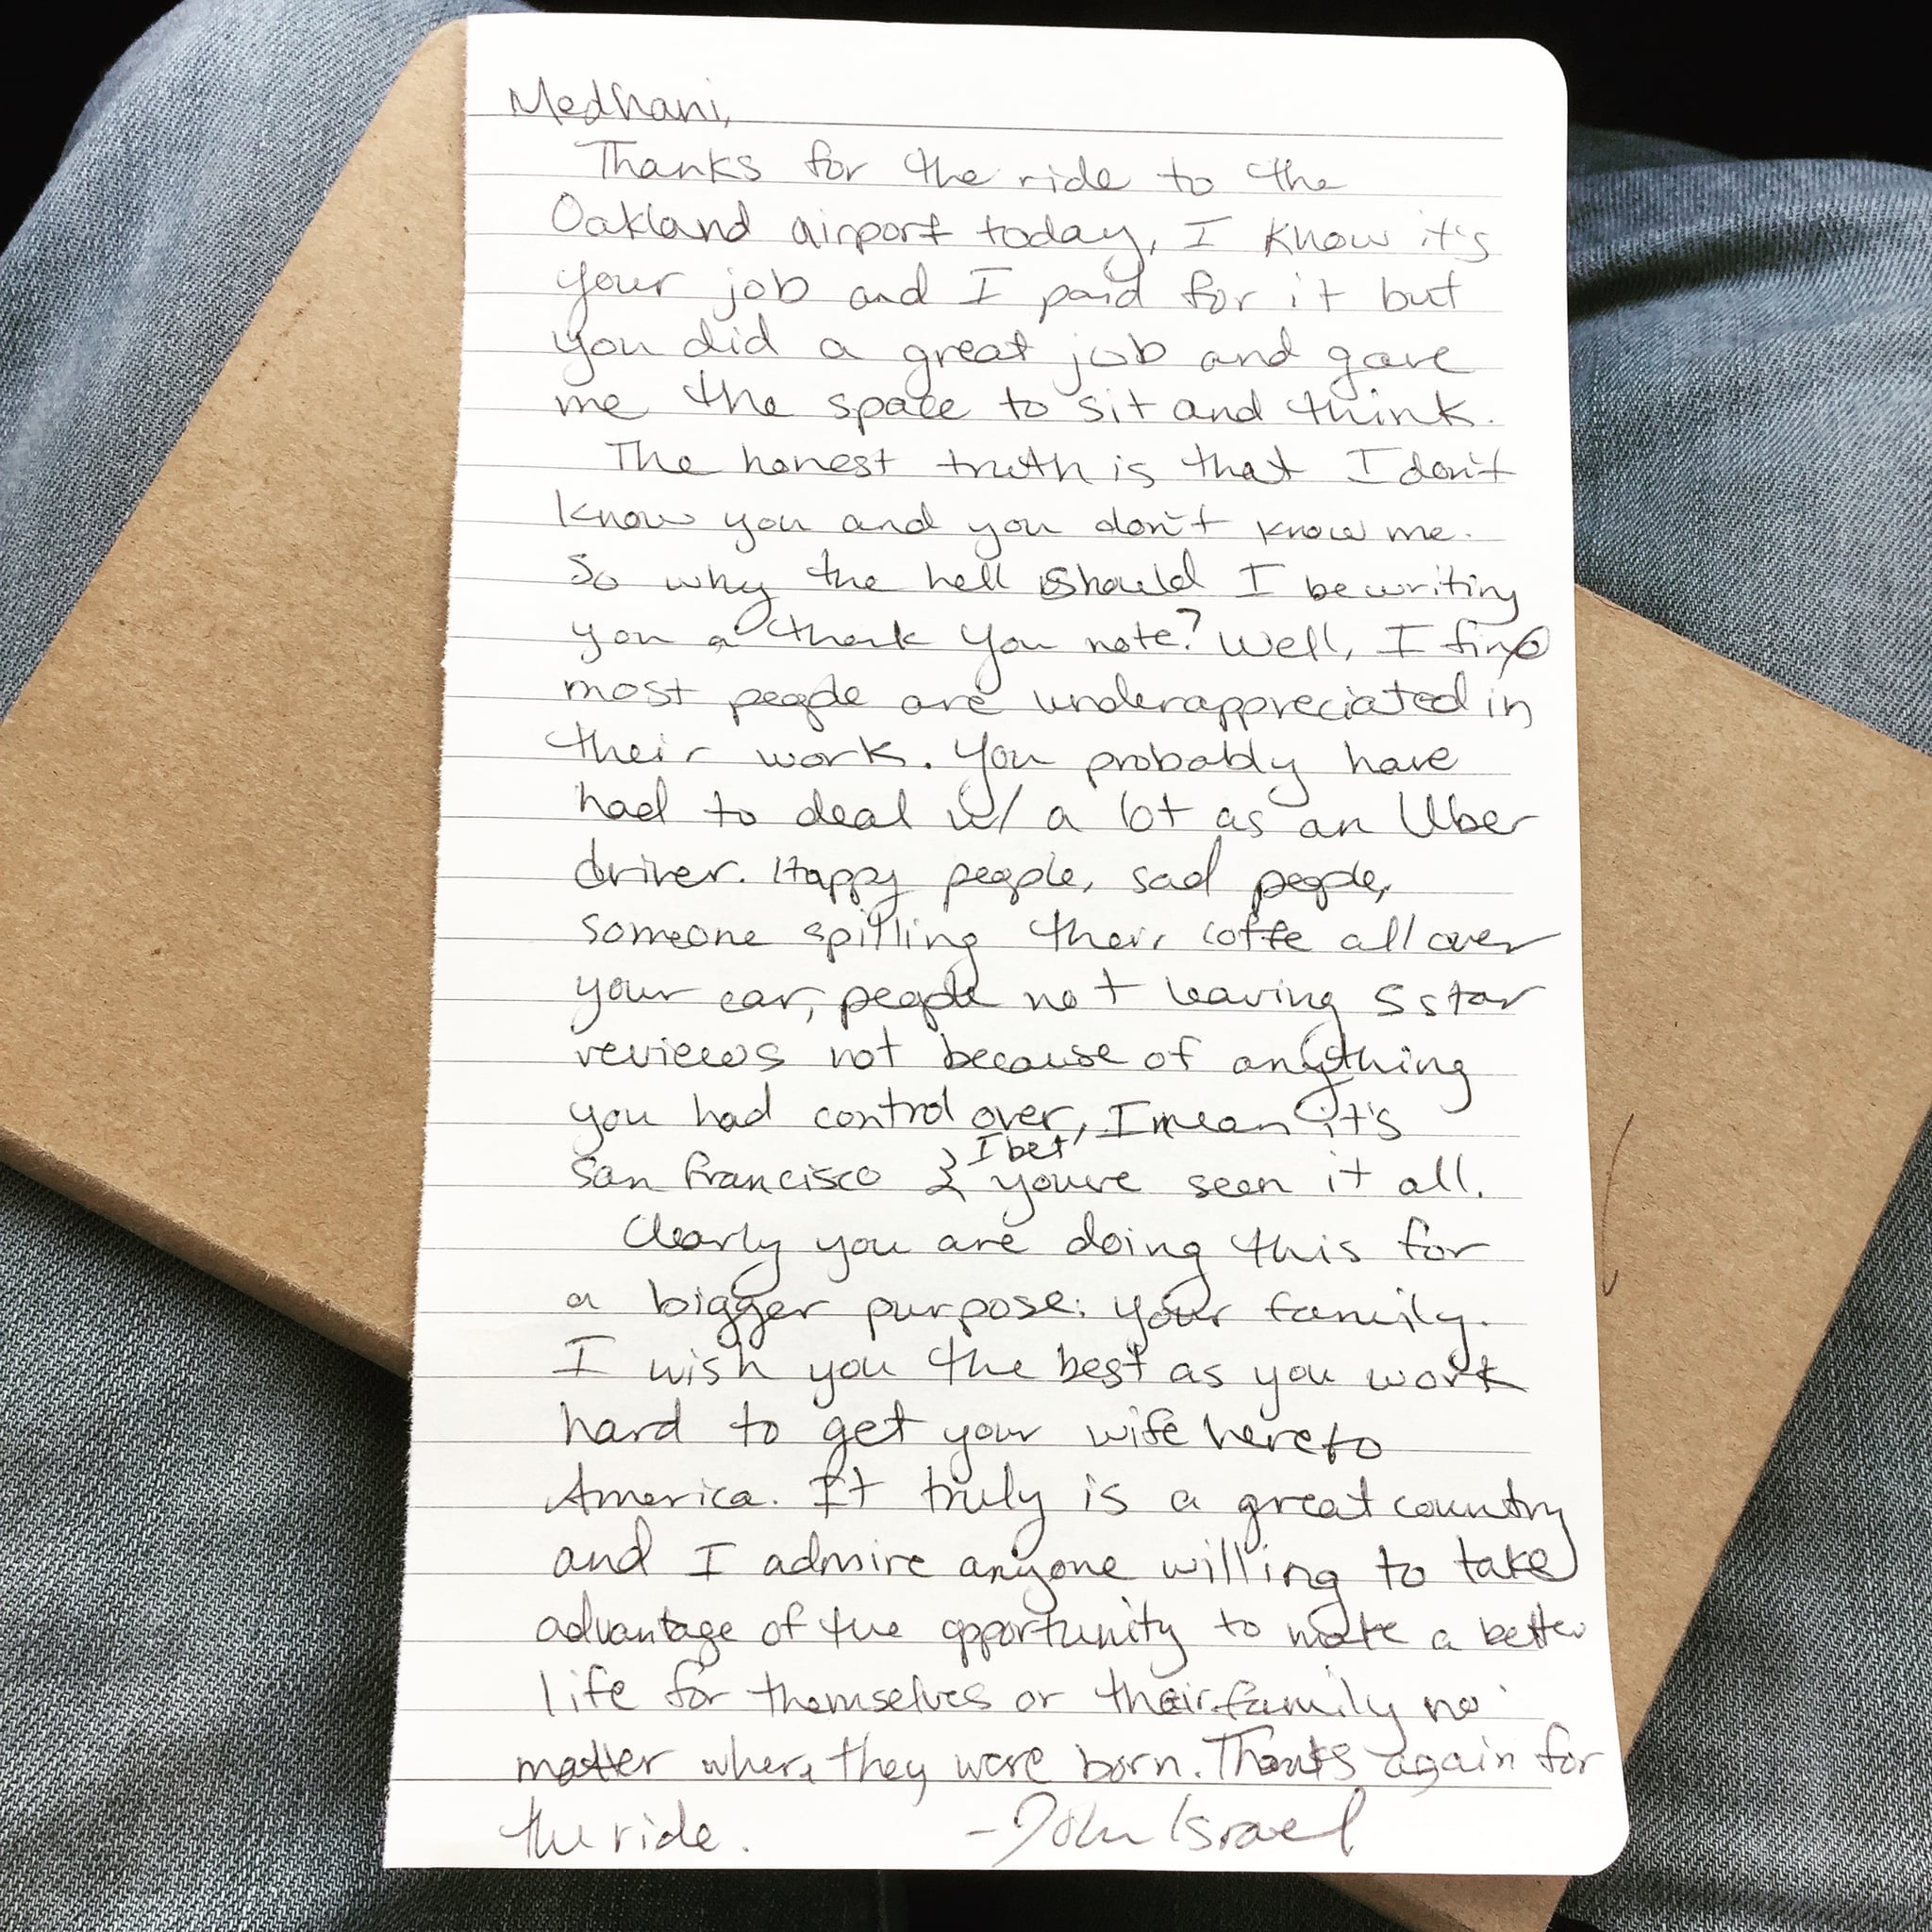 Medhani,
Thanks for the ride to the
Oakland airport today, I know it's
your job and I paid for it but
you did a great job and gave
me the space to sit and think.
The honest truth is that I don't
know you and you don't know me.
So why the hell should I be writing
you a thank you note? Well, I find
most people are underappreciated in
their work. You probably have
had to deal w/ a lot as an Uber
driver. Happy people, sad people,
someone spilling their coffe all over
your car, people not leaving 5 star
reviews not because of anything
you had control over, I mean it's
San Francisco & I bet you've seen it all.
Clearly you are doing this for
a bigger purpose: your family.
I wish you the best as you work
hard to get your wife here to
America. It truly is a great country
and I admire anyone willing to take
advantage of the opportunity to make a better
life for themselves or their family no
matter where they were born. Thanks again for
the ride. - John Israel